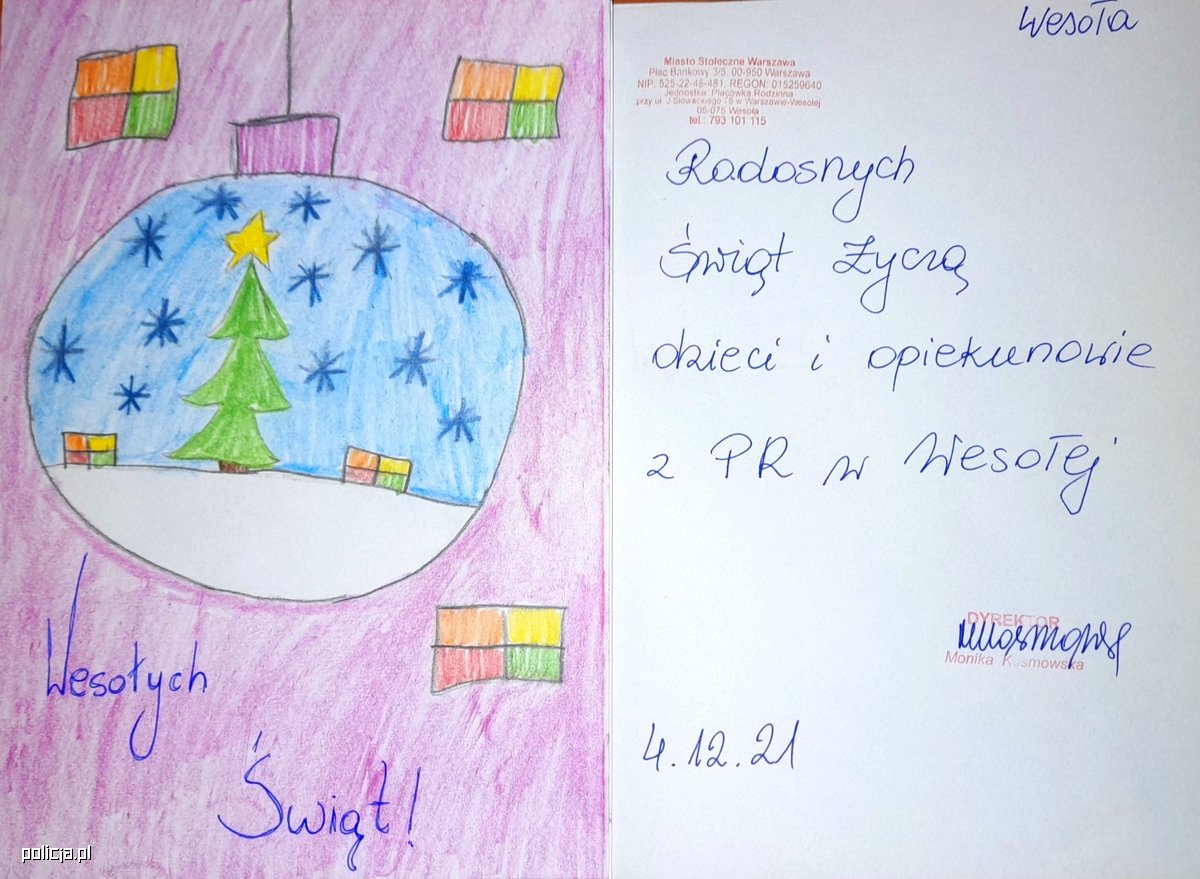 Wesołych
Świąt!
policja.pl
Wesoła
Miasto Stołeczne Warszawa
Plac Bankowy 3/5, 00-950 Warszawa
NIP: 525-22-48-481, REGON: 015259640
Jednostka: Placówka Rodzinna
przy ul. J.Słowackiego 75 w Warszawie-Wesołej
05-075 Wesoła
tel.: 793 101 115
Radosnych
Świąt życzą
dzieci i opiekunowie
z PR w Wesołej
DYREKTOR
Monika Kosmowska
4.12.21